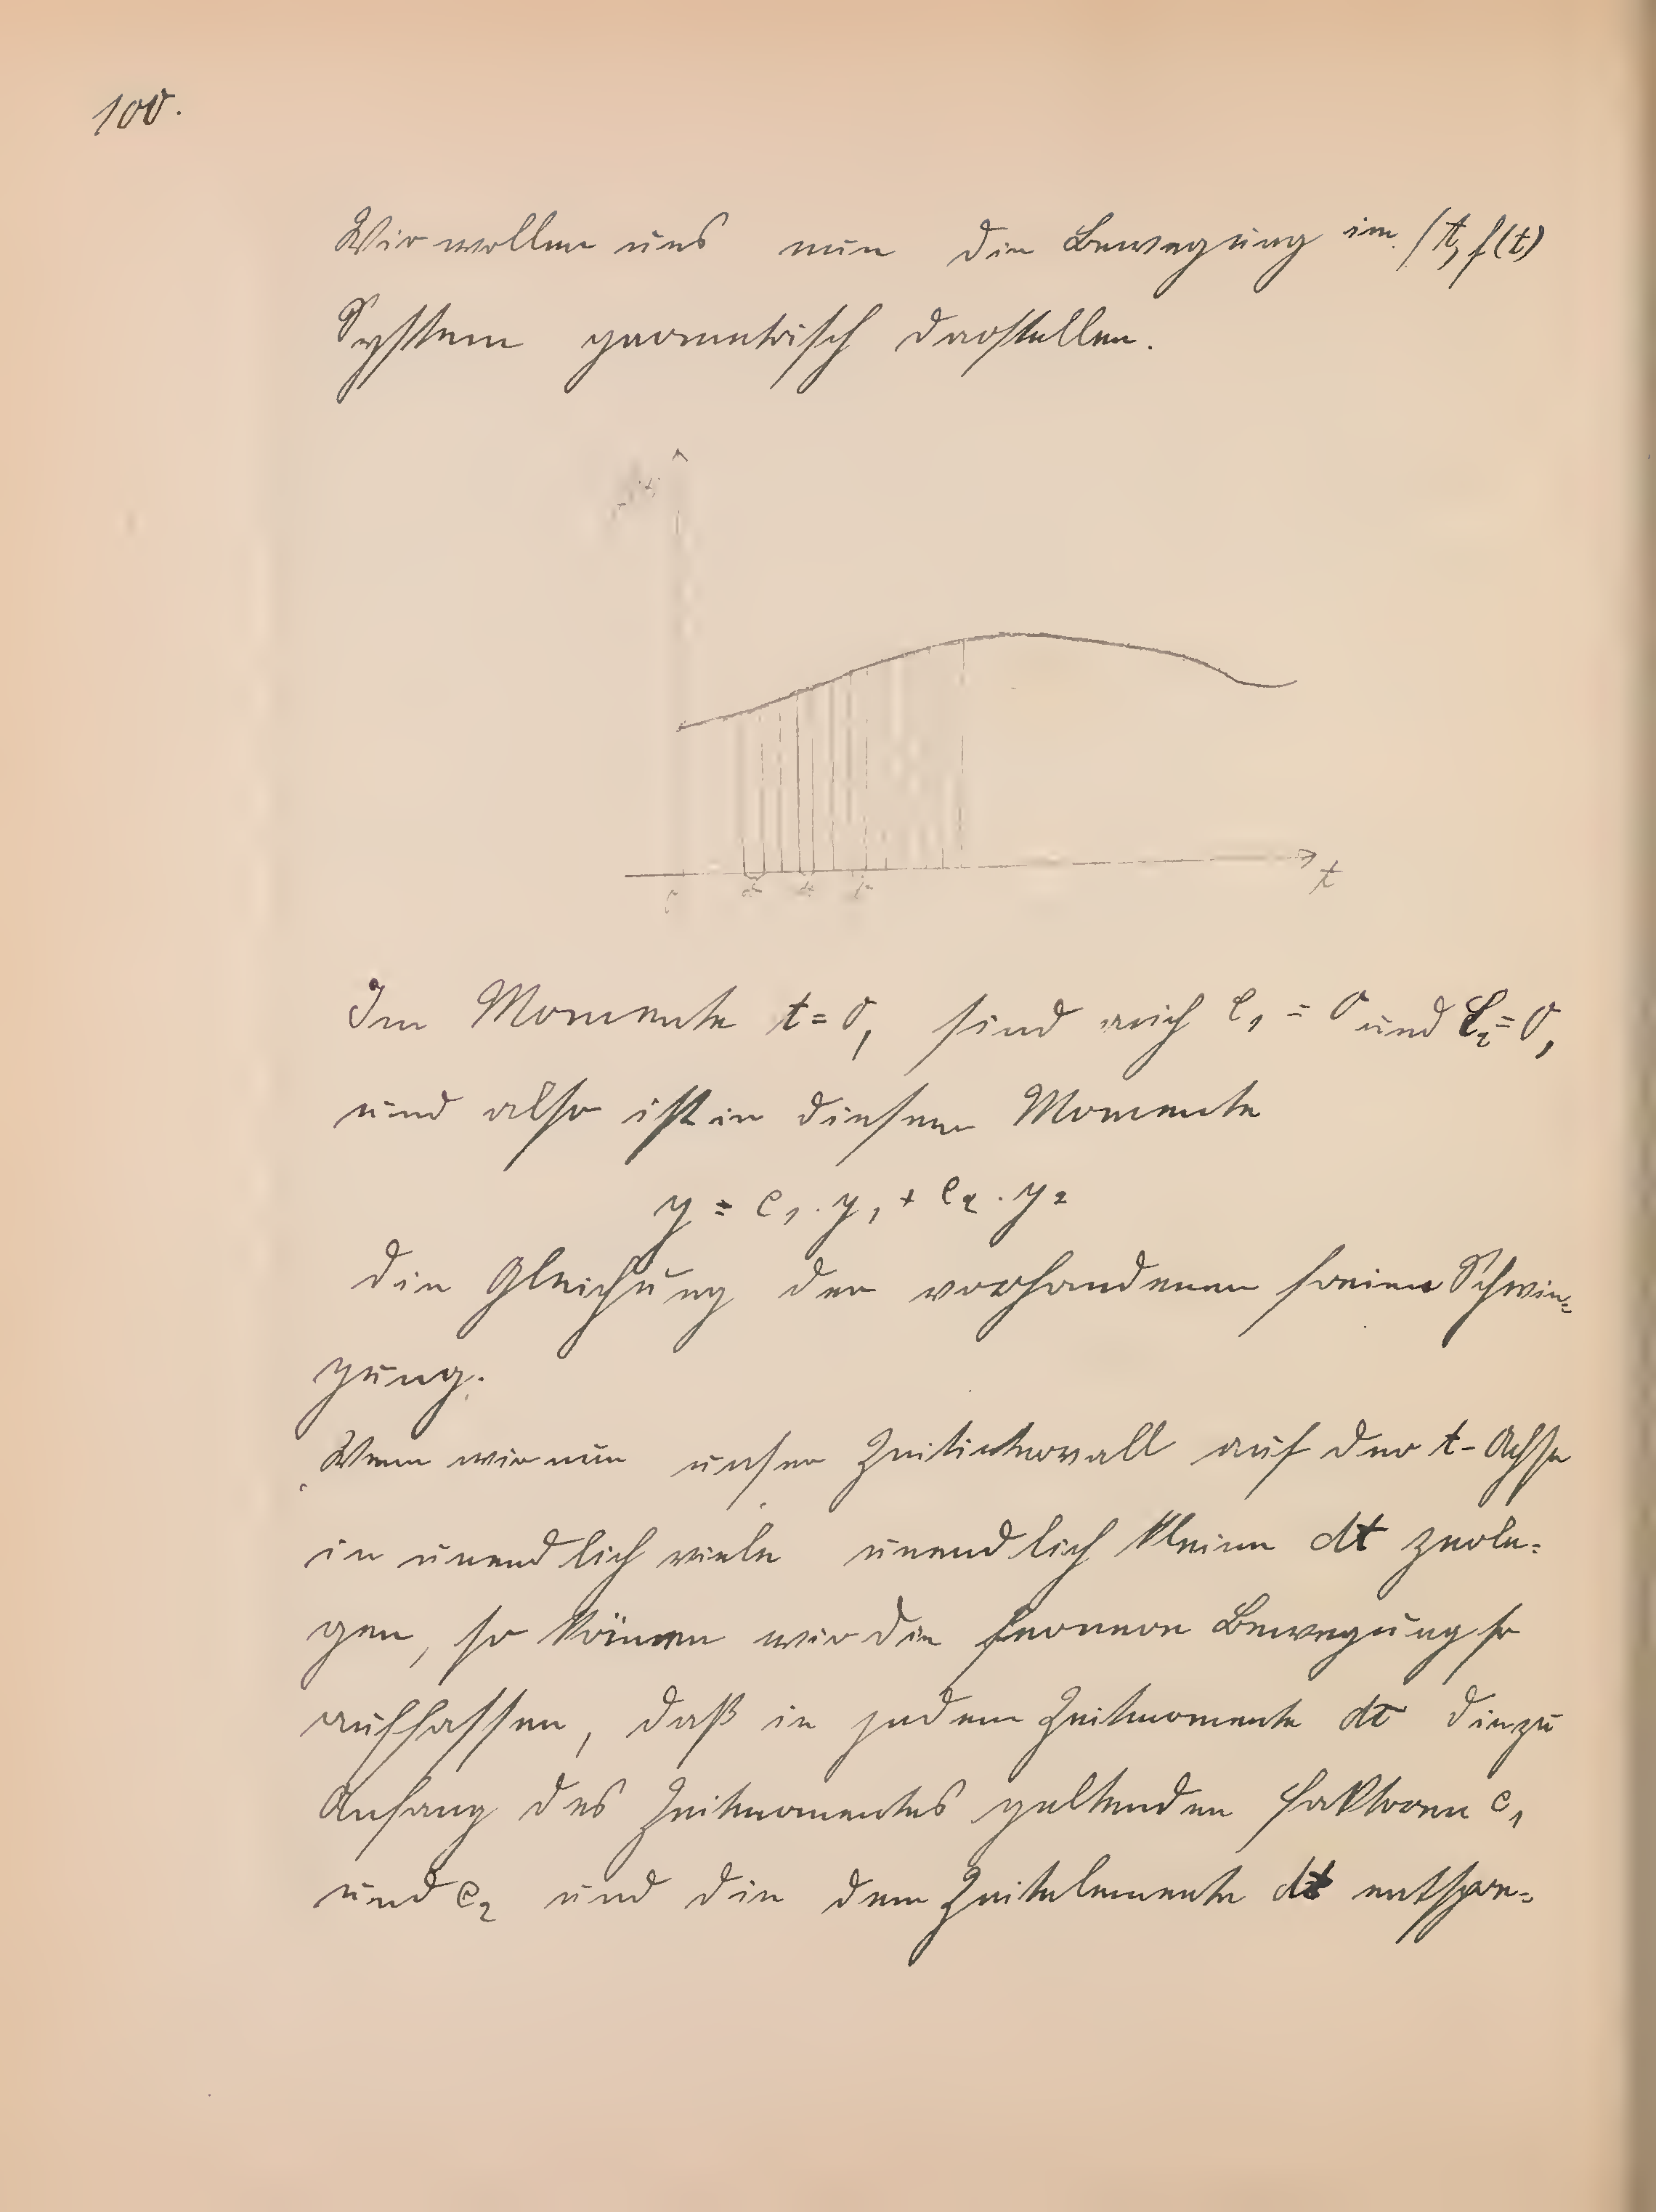 100.
Wir wollen uns nun die Bewegung im (t, f(t)
System geometrisch darstellen.
t
Im Momente t = 0, sind auch C₁ = 0 und C₂ = 0,
und also ist in diesem Momente
y = C₁ . y₁ + C₂ . y₂
die Gleichung der vorhandenen freien Schwin=
gung.
Wenn wir nun unser Zeitintervall auf der t-Achse
in unendlich viele unendlich kleine dt zerle=
gen, so können wir die fernere Bewegung so
auffassen, daß in jedem Zeitmomente dt die zu
Anfang des Zeitmomentes geltenden Faktoren C₁
und C₂ und die dem Zeitelemente dt entspre=